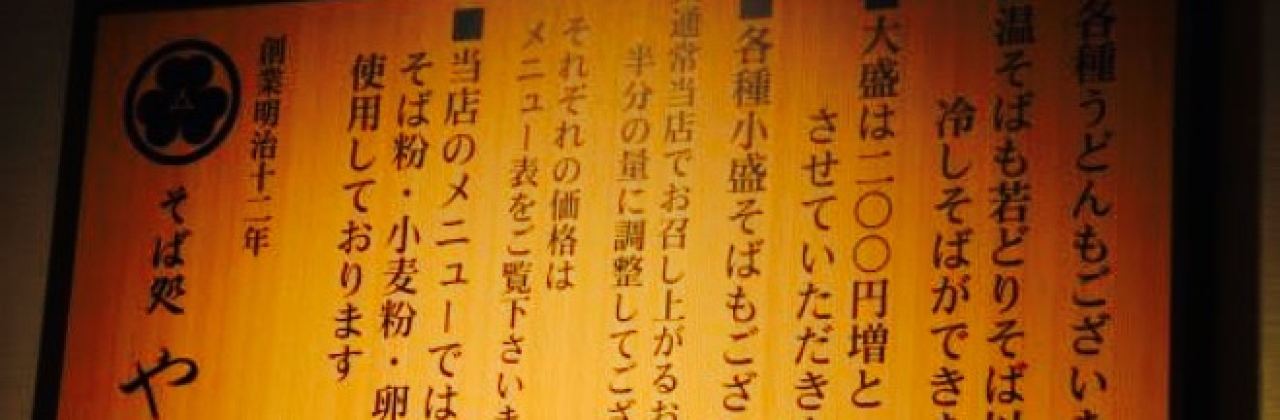 各種うどんもござい
温そばも若どりそば
冷しそばができ
■大盛は二〇〇円増と
させていただき
■各種小盛そばもござ
通常当店でお召し上がるお
半分の量に調整してござ
それぞれの価格は
メニュー表をご覧下さいま
■当店のメニューでは
そば粉・小麦粉・卵
使用しております
創業明治十二年
そば処 や